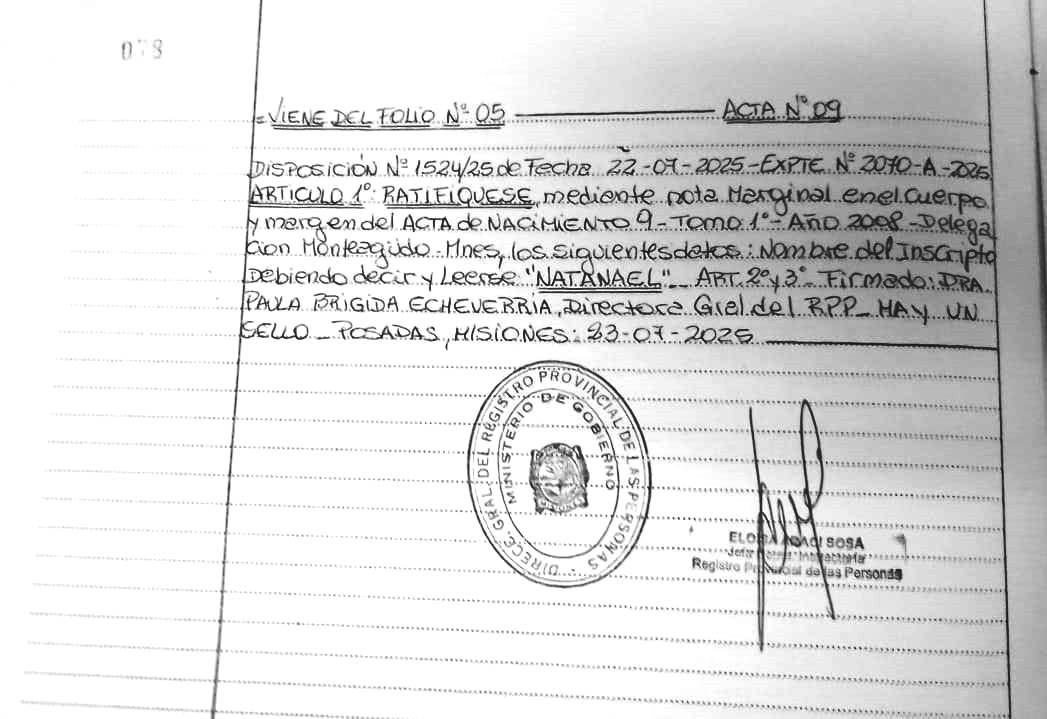 078
= VIENE DEL FOLIO Nº 05 ACTA Nº 09
DISPOSICIÓN Nº 1524/25 de Fecha 22-07-2025 - EXPTE Nº 2070-A-2025
ARTICULO 1º: RATIFIQUESE, mediente nota Marginal en el Cuerpo
y margen del ACTA de NACIMIENTO 9 - Tomo 1º - Año 2008 - Delega
cion Monteagudo - Mnes, los siguientes datos: Nombre del Inscripto
Debiendo decir y Leerse "NATANAEL" - ART. 2º y 3º - Firmado: DRA.
PAULA BRIGIDA ECHEVERRIA, Directora Gral del RPP - HAY UN
SELLO - POSADAS, MISIONES: 23-07-2025
DIRECC. GRAL. DEL REGISTRO PROVINCIAL DE LAS PERSONAS
MINISTERIO DE GOBIERNO
SOSA
Registro Provincial de las Personas